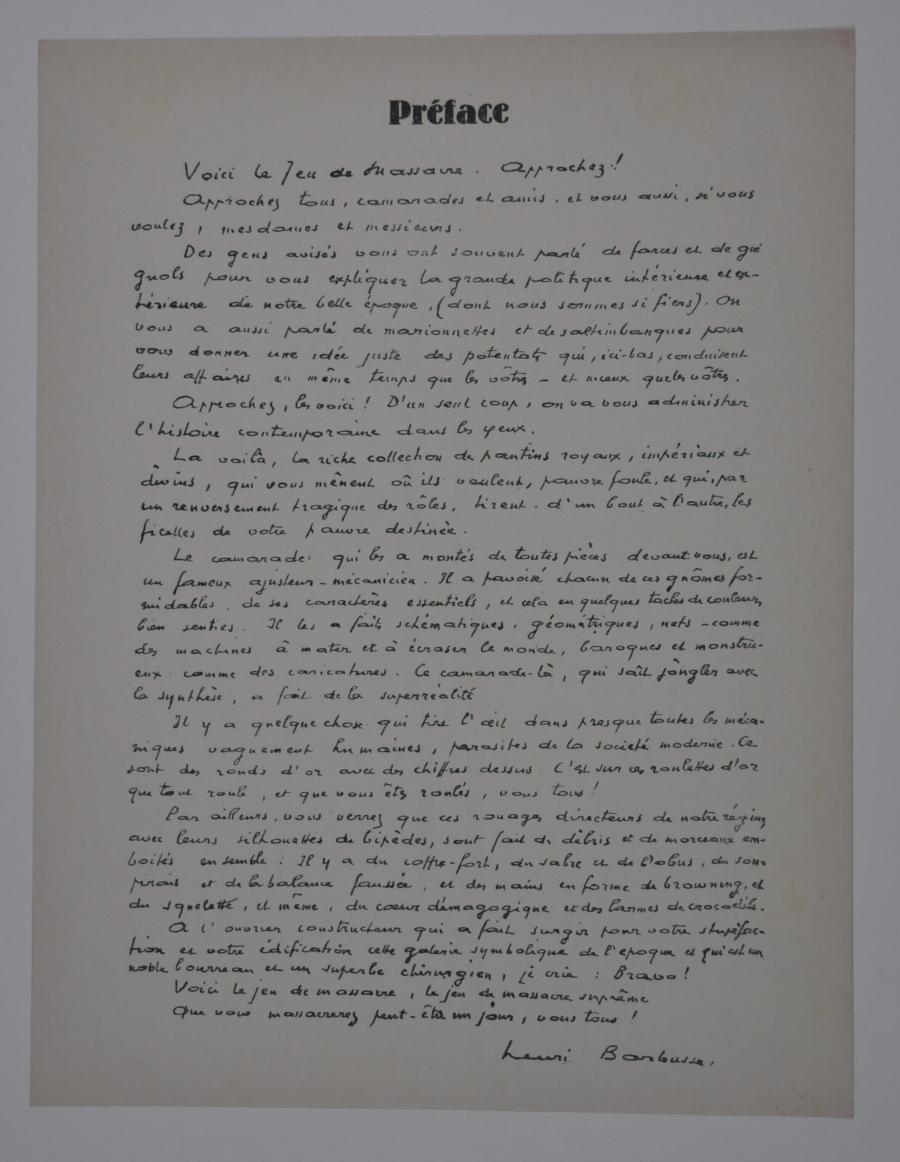 Préface
Voici le Jeu de Massacre. Approchez!
Approchez tous, camarades et amis, et vous aussi, si vous
voulez, mesdames et messieurs.
Des gens avisés vous ont souvent parlé de farces et de gui
gnols pour vous expliquer la grande politique intérieure et ex-
térieure de notre belle époque, (dont nous sommes si fiers). On
vous a aussi parlé de marionnettes et de saltimbanques pour
vous donner une idée juste des potentats qui, ici-bas, conduisent
leurs affaires en même temps que les vôtres - et mieux que les vôtres.
Approchez, les voici! D'un seul coup, on va vous administrer
l'histoire contemporaine dans les yeux.
La voilà, la riche collection de pantins royaux, impériaux et
divins, qui vous mènent où ils veulent, pauvre foule, et qui, par
un renversement tragique des rôles, tirent, d'un bout à l'autre, les
ficelles de votre pauvre destinée.
Le camarade qui les a montés de toutes pièces devant vous, est
un fameux ajusteur-mécanicien. Il a pavoisé chacun de ces gnômes for-
midables, de ses caractères essentiels, et cela en quelques taches de couleurs,
bien senties. Il les a faits schématiques, géométriques, nets - comme
des machines à mater et à écraser le monde, baroques et monstru-
eux comme des caricatures. Ce camarade-là, qui sait jongler avec
la synthèse, a fait de la superréalité
Il y a quelque chose qui tire l'œil dans presque toutes les méca-
niques vaguement humaines, parasites de la société moderne. Ce
sont des ronds d'or avec des chiffres dessus. C'est sur ces roulettes d'or
que tout roule, et que vous êtes roulés, vous tous!
Par ailleurs, vous verrez que ces rouages directeurs de notre régime,
avec leurs silhouettes de bipèdes, sont fait de débris et de morceaux em-
boités ensemble: Il y a du coffre-fort, du sabre et de l'obus, du sou-
pirail et de la balance faussée, et des mains en forme de browning, et
du squelette, et même, du cœur démagogique et des larmes de crocodile.
A l'ouvrier constructeur qui a fait surgir pour votre stupéfac-
tion et votre édification cette galerie symbolique de l'époque et qui est un
noble bourreau et un superbe chirurgien, je crie: Bravo!
Voici le jeu de massacre, le jeu de massacre suprême
Que vous massacrerez peut-être un jour, vous tous!
Henri Barbusse.